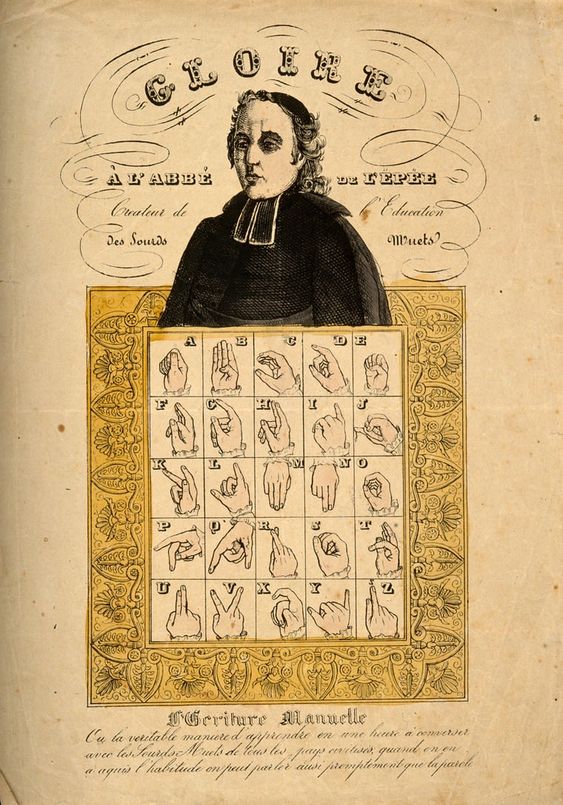 GLOIRE
À L'ABBÉ DE L'ÉPÉE
Createur de l'Education
des Sourds Muets
A B C D E
F G H I J
K L M N O
P Q R S T
U V X Y Z
L'Ecriture Manuelle
Ou la veritable maniere d'apprendre en une heure à converser
avec les Sourds Muets de tous les pays quand on en
à aquis l'habitude on peut parler ausi promptement que la parole